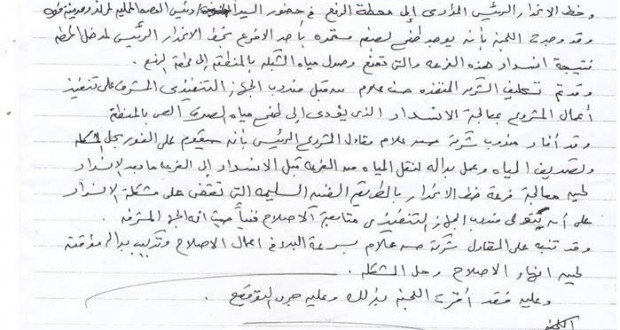 وخط الانحدار الرئيسى المؤدى إلى محطة الرفع فى حضور السيد / رئيس
وقد وجدت اللجنة بأنه يوجد طفح بصفه مستمره بأحد الأفرع بخط الانحدار الرئيسى لمدخل المحطة
نتيجة انسداد هذه الفرعه والتى تمنع وصول مياه الشبكه بالمنطقه إلى محطة الرفع .
وقد تم تكليف الشركه المنفذه حسن علام من قبل مندوب الجهاز التنفيذى المشرف على تنفيذ
أعمال المشروع بمعالجة الانسداد الذى يؤدى إلى طفح مياه الصرف الصحى بالمنطقة
وقد أفاد مندوب شركة حسن علام مقاول المشروع الرئيسى بأنه سيقوم على الفور بحل المشكله
وتصريف المياه وعمل بداله لنقل المياه من الغرفه قبل الانسداد إلى الغرفه ما بعد الانسداد
لحين معالجة فرعة خط الانحدار بالطريقه الفنيه السليمه التى تقضى على مشكلة الانسداد
على أن يتولى مندوب الجهاز التنفيذى متابعة الاصلاح فنياً حيث انه الجهه المشرفه .
وقد تنبه على المقاول شركة حسن علام بسرعة البدء فى اعمال الاصلاح وتركيب بداله مؤقته
لحين انهاء الاصلاح وحل المشكله .
وعليه فقد أقرت اللجنة بذلك وعليه جرى التوقيع .
اللجنة